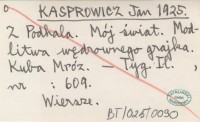 KASPROWICZ Jan 1925.
Z Podhala. Mój świat. Mod-
litwa wędrownego grajka.
Kuba Mróz. — Tyg. Il.,
nr : 609.
Wiersze.
BT/025/0090